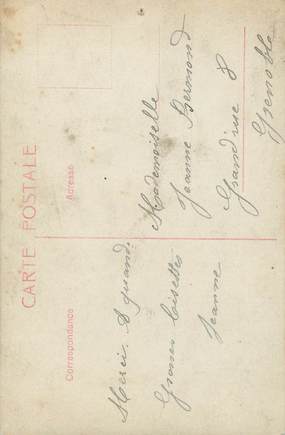 CARTE POSTALE
Correspondance
Adresse
Merci. A quand.
Grosses Bisettes
Jeanne
Mademoiselle
Jeanne Bermond
Grand'rue 8
Grenoble